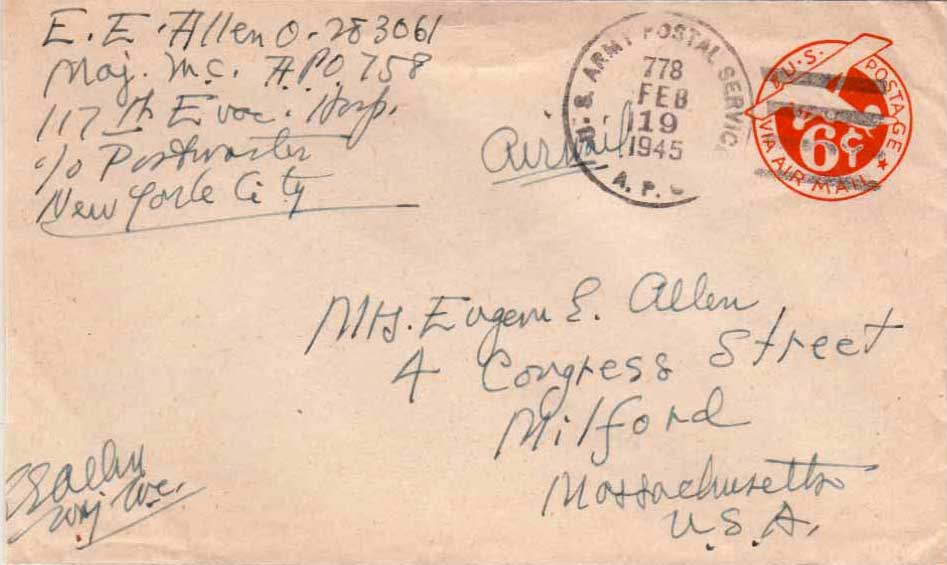 E. E. Allen O-283061
Maj. M.C. A.P.O. 758
117th Evac. Hosp.
c/o Postmaster
New York City
Airmail
U.S. ARMY POSTAL SERVICE
778
FEB
19
1945
A. P.
U.S. POSTAGE
6¢
VIA AIR MAIL
Mrs. Eugene E. Allen
4 Congress Street
Milford
Massachusetts
U.S.A.